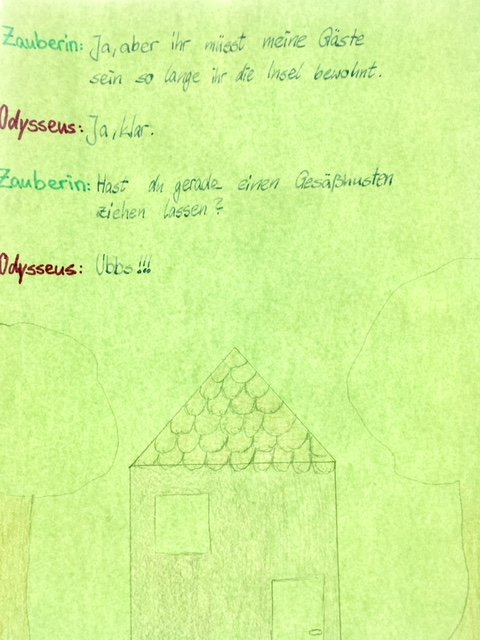 Zauberin: Ja, aber ihr müsst meine Gäste
sein so lange ihr die Insel bewohnt.
Odysseus: Ja, klar.
Zauberin: Hast du gerade einen Gesäßhusten
ziehen lassen?
Odysseus: Ubbs!!!